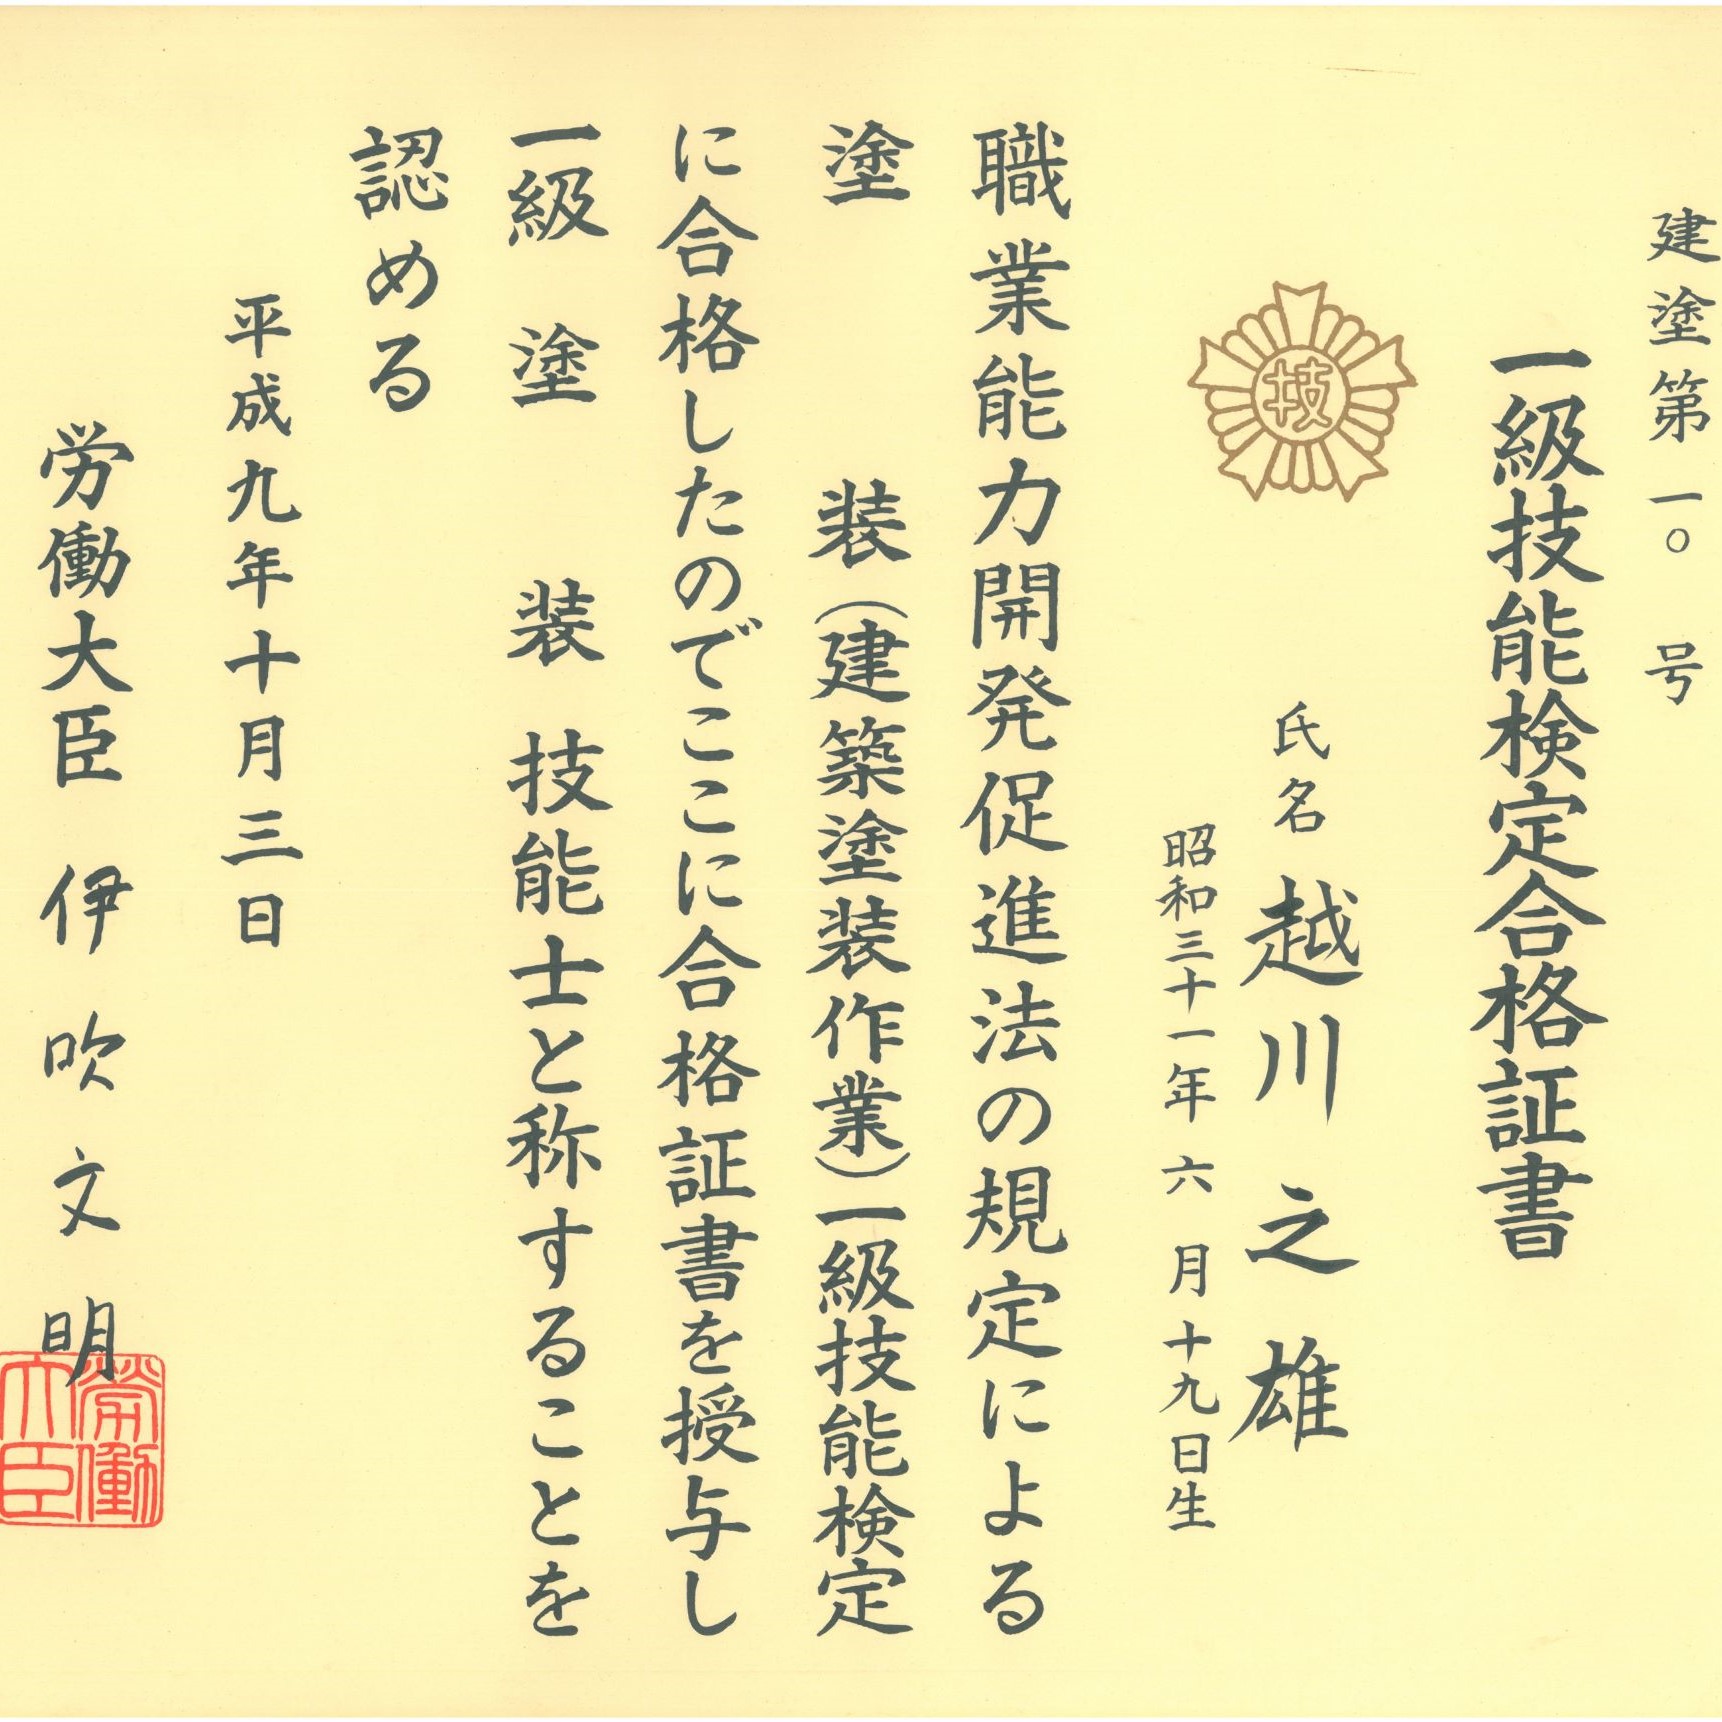 建塗第一〇号
一級技能検定合格証書
技
氏名 越川之雄
昭和三十一年六月十九日生
職業能力開発促進法の規定による
塗装(建築塗装作業)一級技能検定
に合格したのでここに合格証書を授与し
一級塗装技能士と称することを
認める
平成九年十月三日
労働大臣 伊吹文明
労働大臣